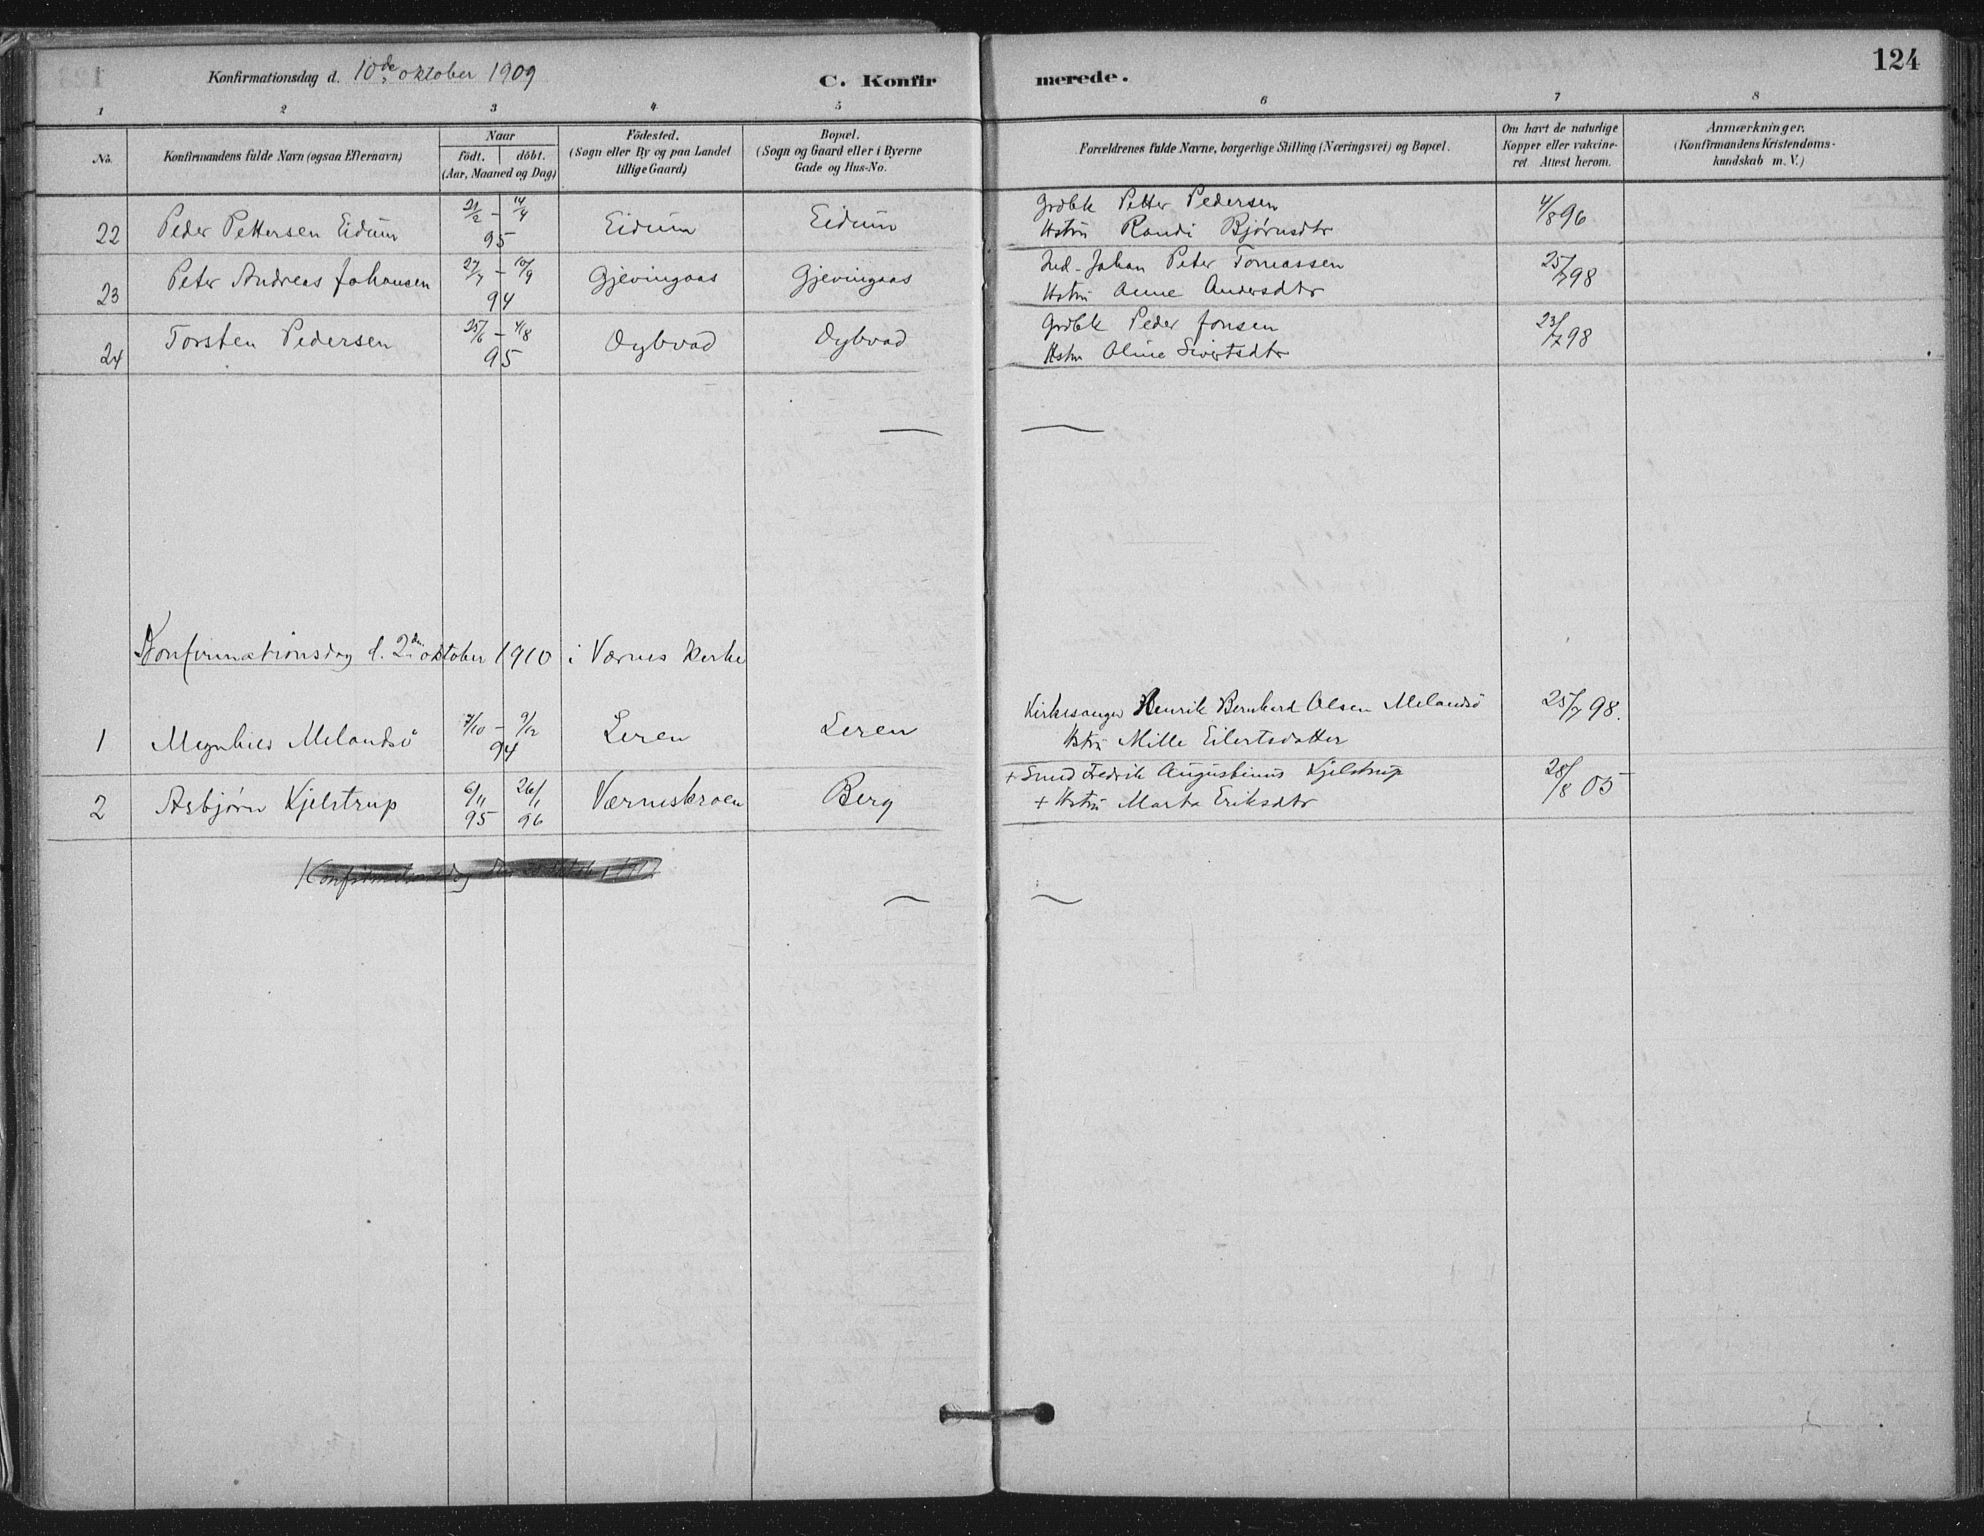 Konfirmationsdag d. 10de oktober 1909
C. Konfirmerede.
124
1 2 3 4 5 6 7 8
No.
Konfirmandens fulde Navn (ogsaa Efternavn)
Naar
födt. döbt.
(Aar, Maaned og Dag)
Födested.
(Sogn eller By og paa Landet
tillige Gaard)
Bopæl.
(Sogn og Gaard eller i Byerne
Gade og Hus-No.
Forældrenes fulde Navne, borgerlige Stilling (Næringsvei) og Bopæl.
Om havt de naturlige
Kopper eller vakcine-
ret. Attest herom.
Anmærkninger.
(Konfirmandens Kristendoms-
kundskab m. V.)
22 Peder Pettersen Eidum 21/2 - 14/4 95 Eidum Eidum Grdbk Petter Pedersen 4/8 96
Hstru Randi Bjørnsdtr
23 Peter Andreas Johansen 27/7 - 10/9 94 Gjevingaas Gjevingaas Ind. Johan Peter Tomassen 25/7 98
Hstru Anne Andersdtr
24 Torsten Pedersen 25/6 - 4/8 95 Dybvad Dybvad Grdbk Peder Jonsen 23/7 98
Hstru Oline Sivertsdtr
Konfirmationsdag d. 2den oktober 1910 i Værnes kirke
1 Magnhild Melandsö 7/10 - 9/12 94 Leren Leren Kirkesanger Henrik Bernhard Olsen Melandsö 25/7 98.
Hstru Mille Eilertsdatter
2 Asbjørn Kjelstrup 6/11 95 26/1 96 Værneskroen Berg + Smed Fredrik Augustinus Kjelstrup 28/8 05
+ Hstru Marta Eriksdtr
Konfirmationsdag